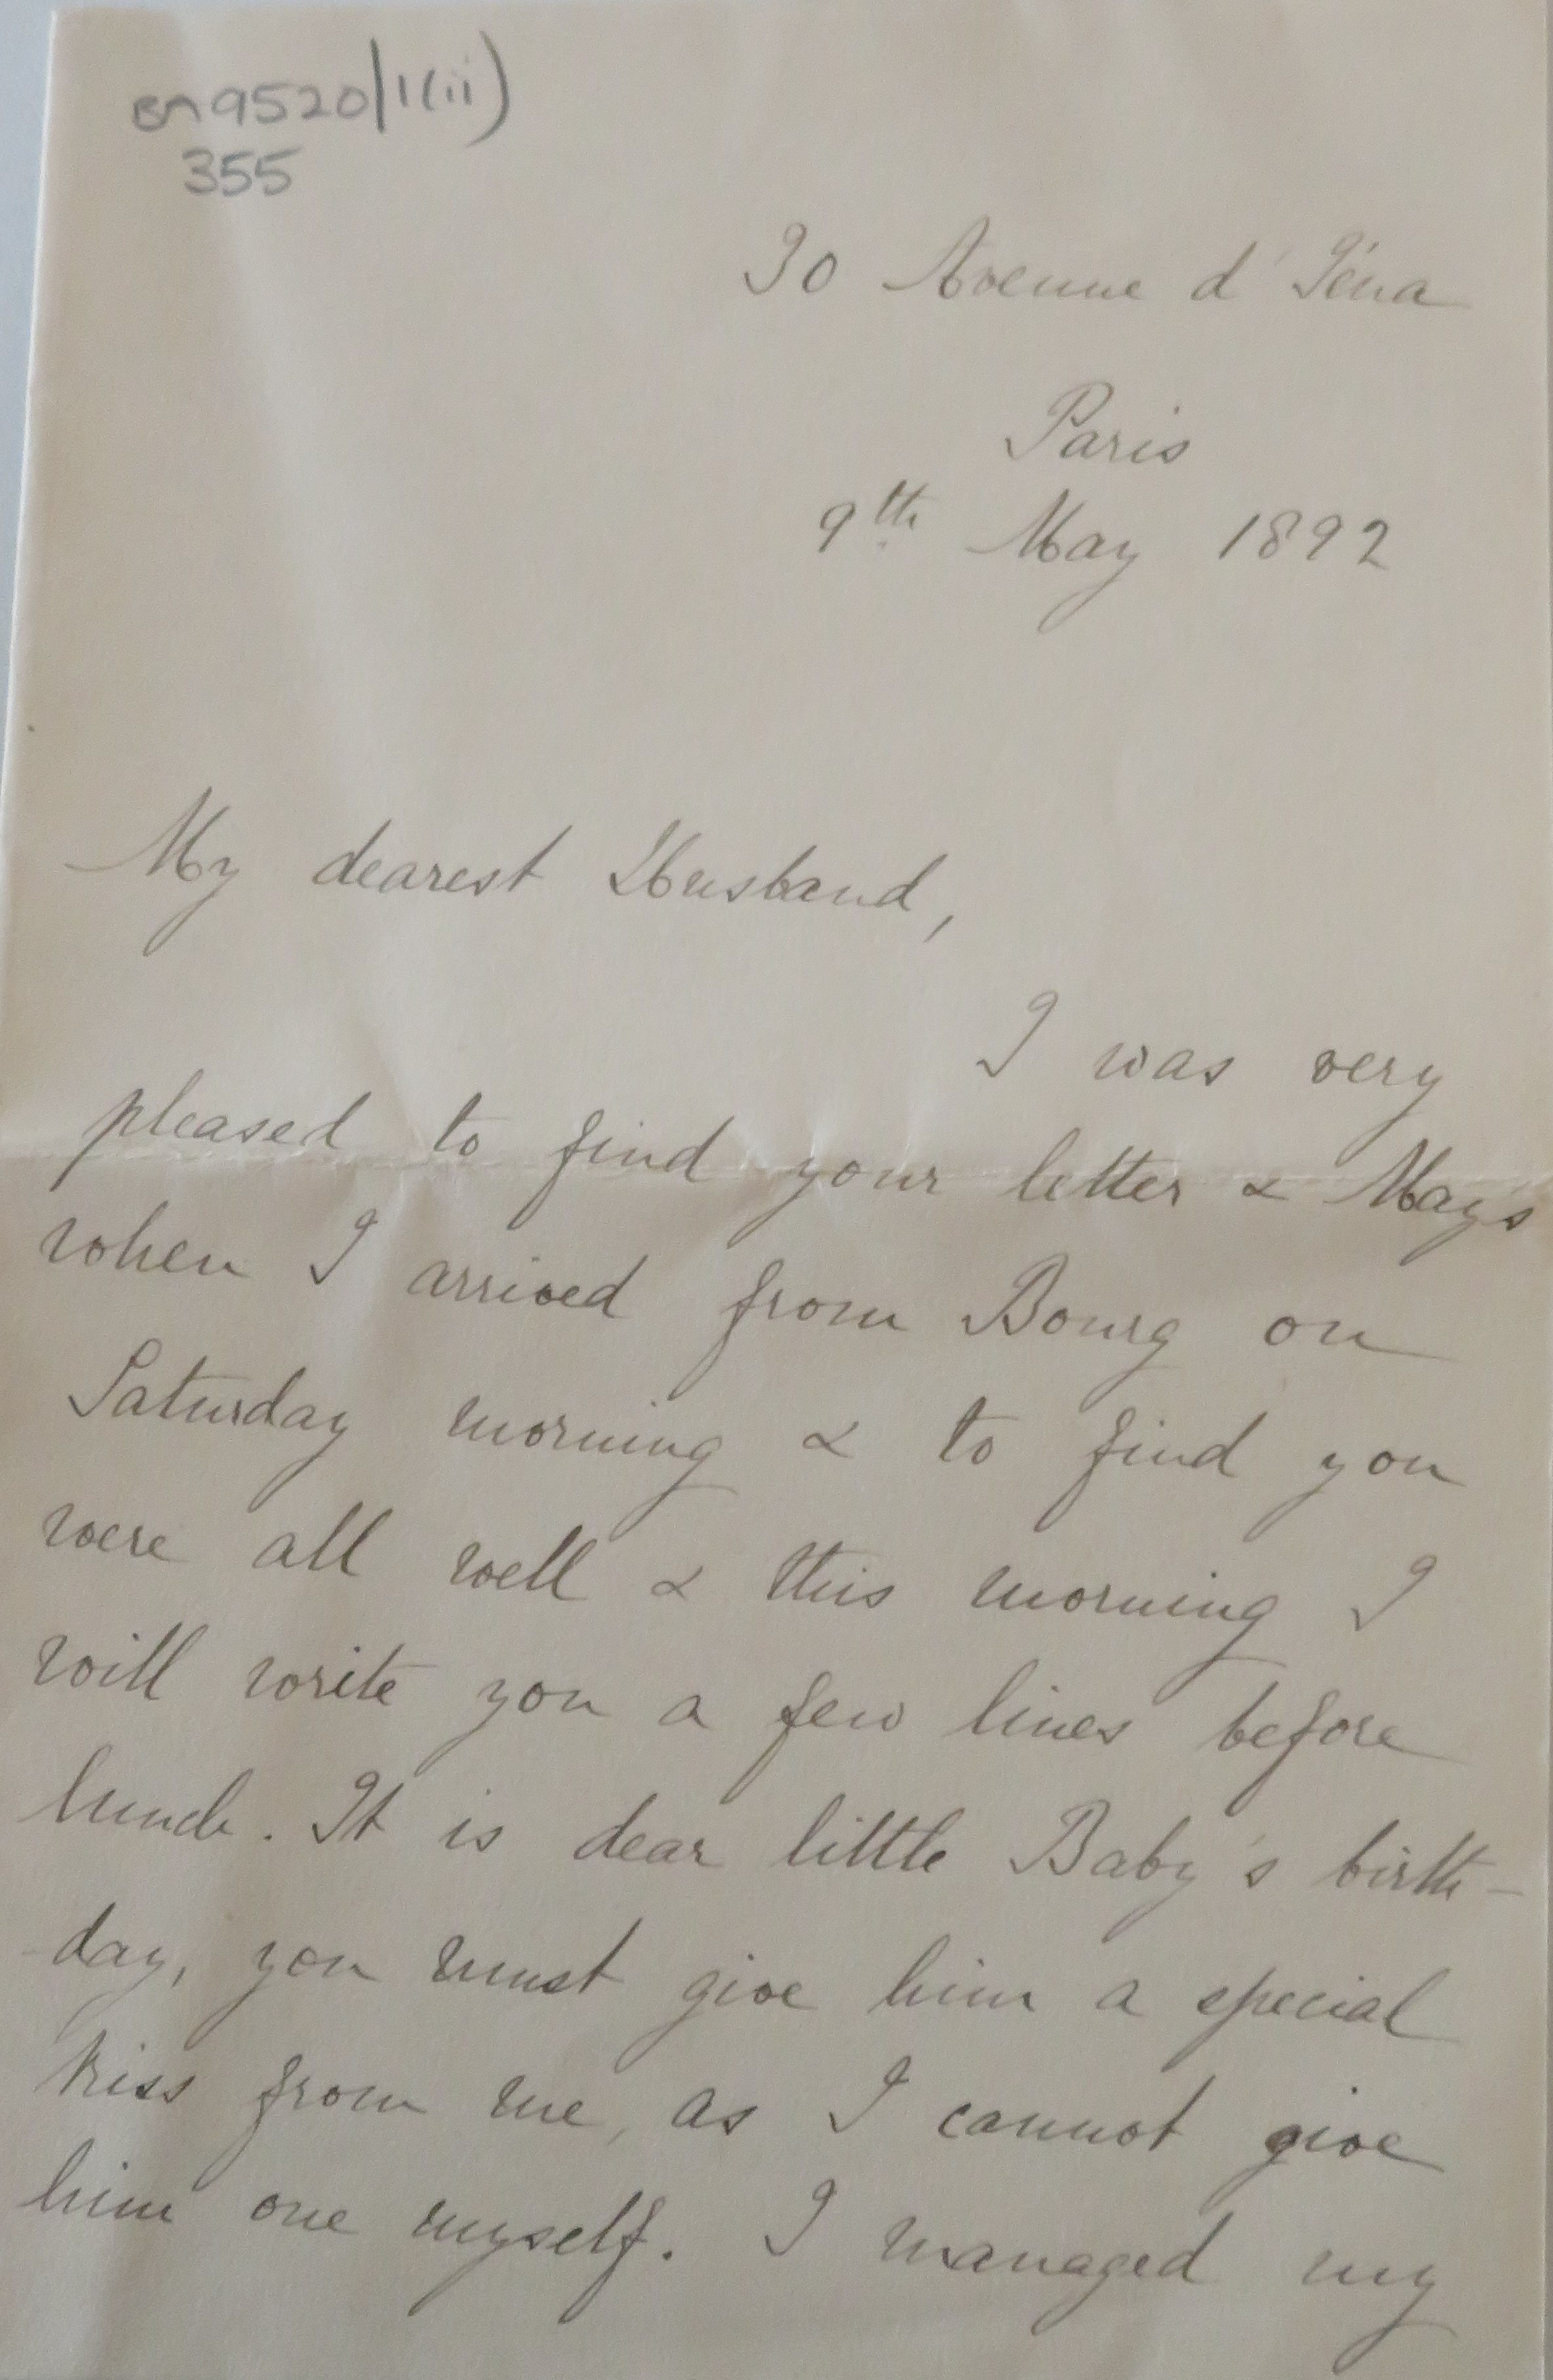 BM9520/1(ii)
355
30 Avenue d'Iéna
Paris
9th May 1892
My dearest Husband,
I was very
pleased to find your letter & May's
when I arrived from Bourg on
Saturday morning & to find you
were all well & this morning I
will write you a few lines before
lunch. It is dear little Baby's birth-
-day, you must give him a special
kiss from me, as I cannot give
him one myself. I managed my